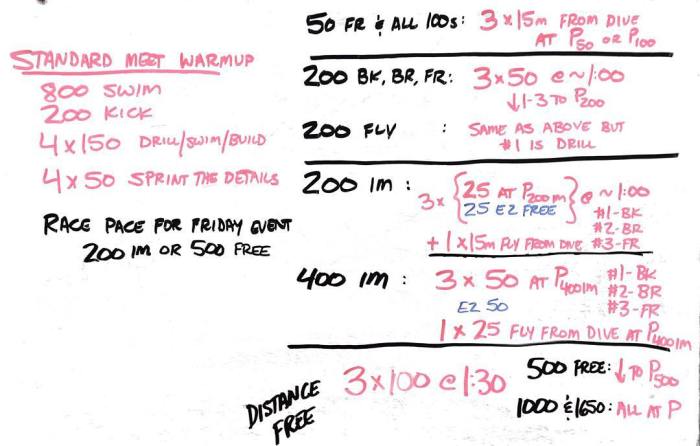 STANDARD MEET WARMUP
800 SWIM
200 KICK
4 x 150 DRILL/SWIM/BUILD
4 x 50 SPRINT THE DETAILS
RACE PACE FOR FRIDAY EVENT
200 IM OR 500 FREE
50 FR & ALL 100s: 3 x 15m FROM DIVE
AT P50 OR P100
200 BK, BR, FR: 3 x 50 @ ~1:00
↓1-3 TO P200
200 FLY : SAME AS ABOVE BUT
#1 IS DRILL
200 IM : 3x {25 AT P200IM} @ ~1:00
25 EZ FREE #1-BK
#2-BR
+ 1 x 15m FLY FROM DIVE #3-FR
400 IM : 3 x 50 AT P400IM #1-BK
#2-BR
EZ 50 #3-FR
1 x 25 FLY FROM DIVE AT P400IM
DISTANCE FREE 3 x 100 @ 1:30 500 FREE: ↓ TO P500
1000 & 1650: ALL AT P